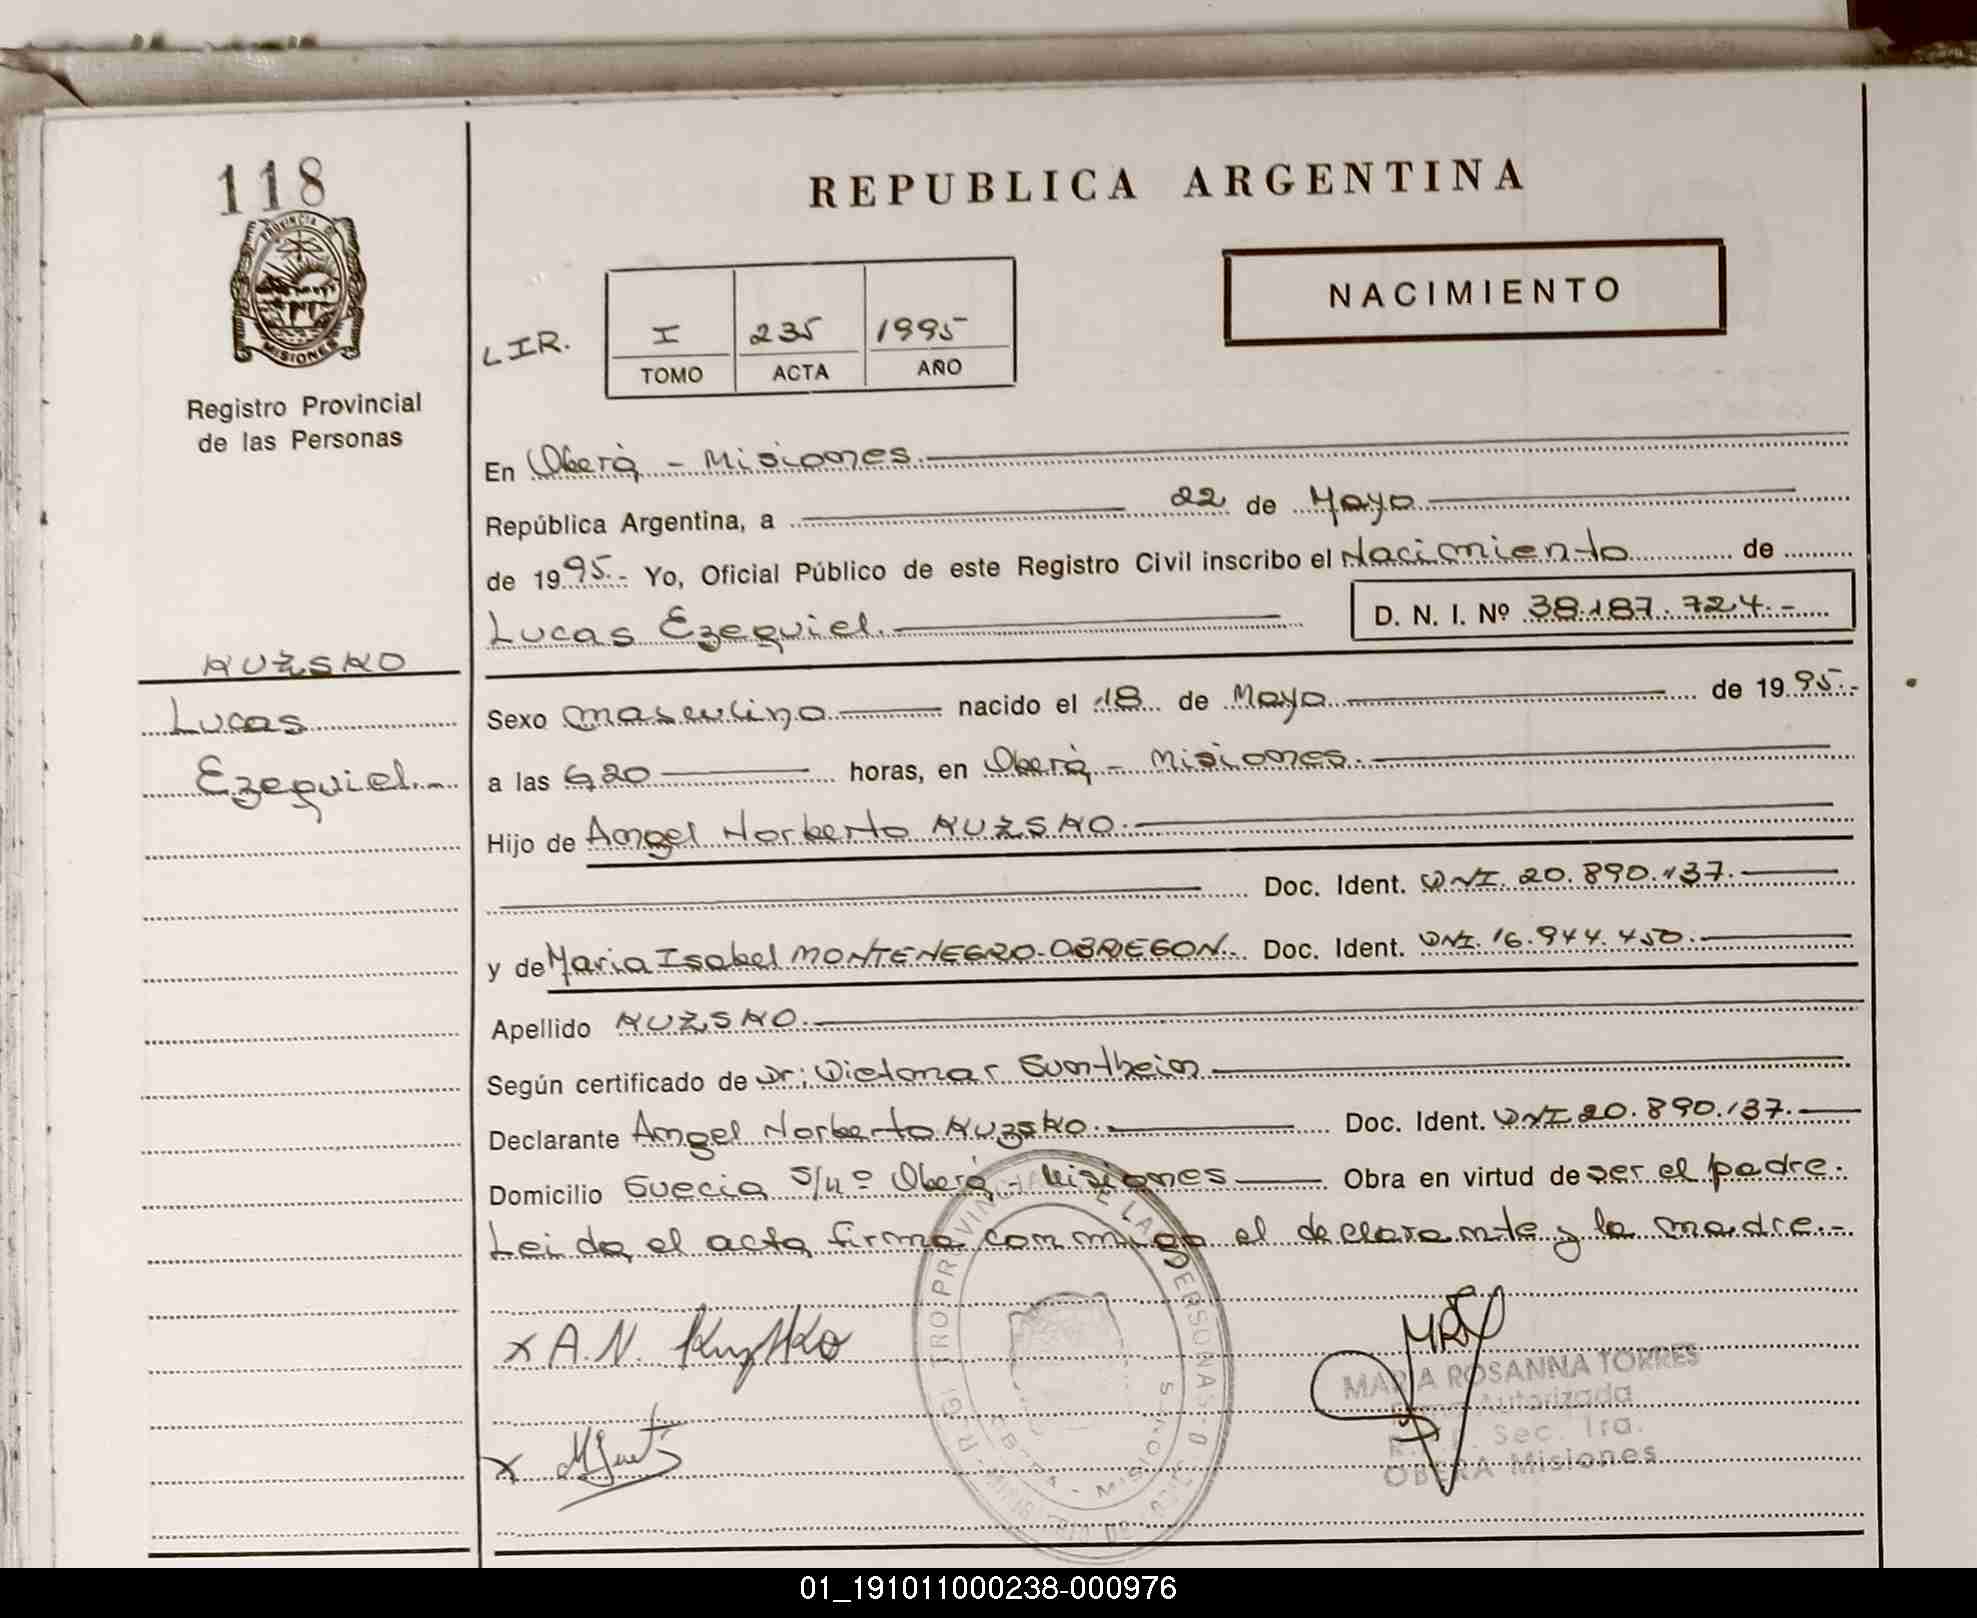 118
PROVINCIA D
MISIONES
Registro Provincial
de las Personas
REPUBLICA ARGENTINA
NACIMIENTO
LIR.
I 235 1995
TOMO ACTA AÑO
En Oberá - Misiones.
República Argentina, a 22 de Mayo
de 1995.- Yo, Oficial Público de este Registro Civil inscribo el Nacimiento de
Lucas Ezequiel. D. N. I. Nº 38.187.724.-
KUZSKO
Lucas
Ezequiel.-
Sexo masculino nacido el 18 de Mayo de 1995.-
a las 6,20 horas, en Oberá - Misiones.
Hijo de Angel Norberto KUZSKO.
Doc. Ident. DNI. 20.890.137.
y de Maria Isabel MONTENEGRO-OBREGON. Doc. Ident. DNI. 16.944.450.
Apellido KUZSKO.
Según certificado de Dr; Dietmar Suntheim
Declarante Angel Norberto KUZSKO. Doc. Ident. DNI 20.890.137.
Domicilio Suecia S/nº Oberá - Misiones Obra en virtud de ser el padre.
Leida el acta firma conmigo el declarante y la madre.-
x A.N.
x
MARIA ROSANNA TORRES
Autorizada
Sec. 1ra.
OBERA Misiones
01_191011000238-000976